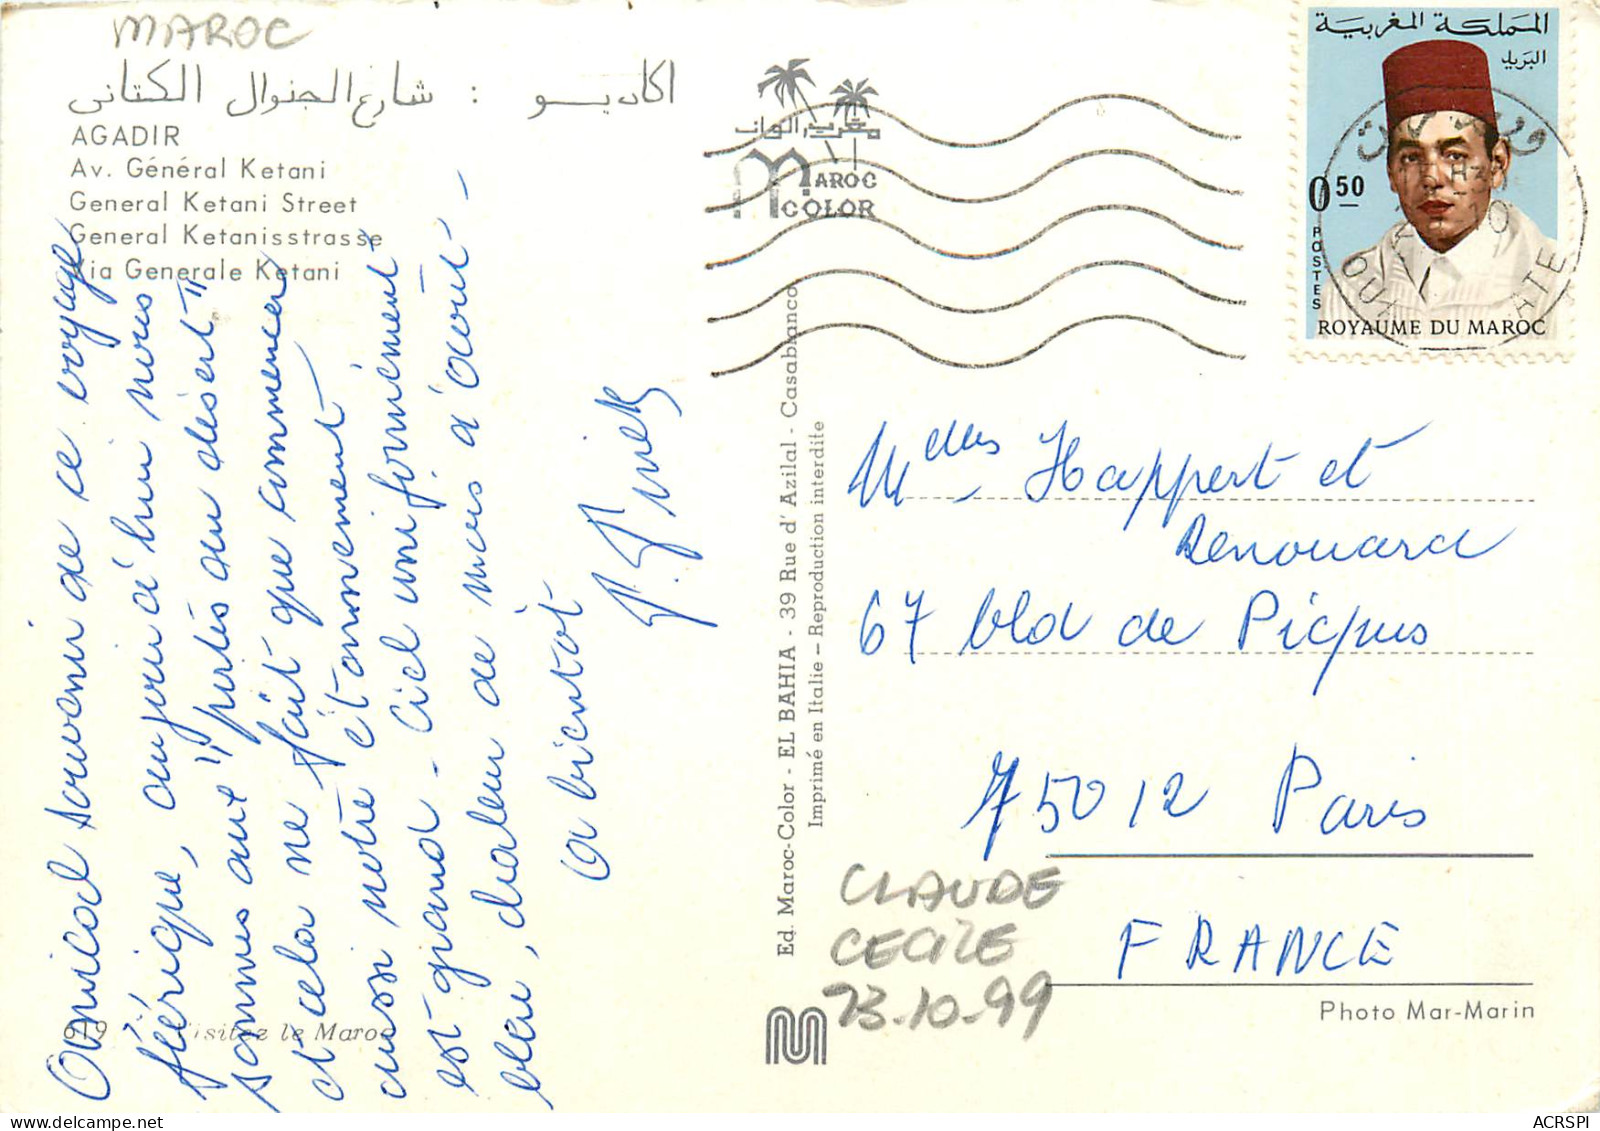 MAROC
اكادير : شارع الجنرال الكتاني
AGADIR
Av. Général Ketani
General Ketani Street
General Ketanisstrasse
Via Generale Ketani
Amical souvenir de ce voyage
féérique, aujourd'hui nous
sommes aux "portes du désert"
et cela ne fait que commencer
aussi notre étonnement
est grand - ciel uniformément
bleu, chaleur de mois d'août -
à bientôt
619 Visitez le Maroc
MAROC
COLOR
Ed. Maroc-Color - EL BAHIA - 39 Rue d'Azilal - Casablanca
Imprimé en Italie - Reproduction interdite
المملكة المغربية
البريد
0,50
POSTES
ROYAUME DU MAROC
Melles Happert et
Renouard
67 bld de Picpus
75012 Paris
FRANCE
CLAUDE
CECILE
23-10-99
Photo Mar-Marin
ACRSPI